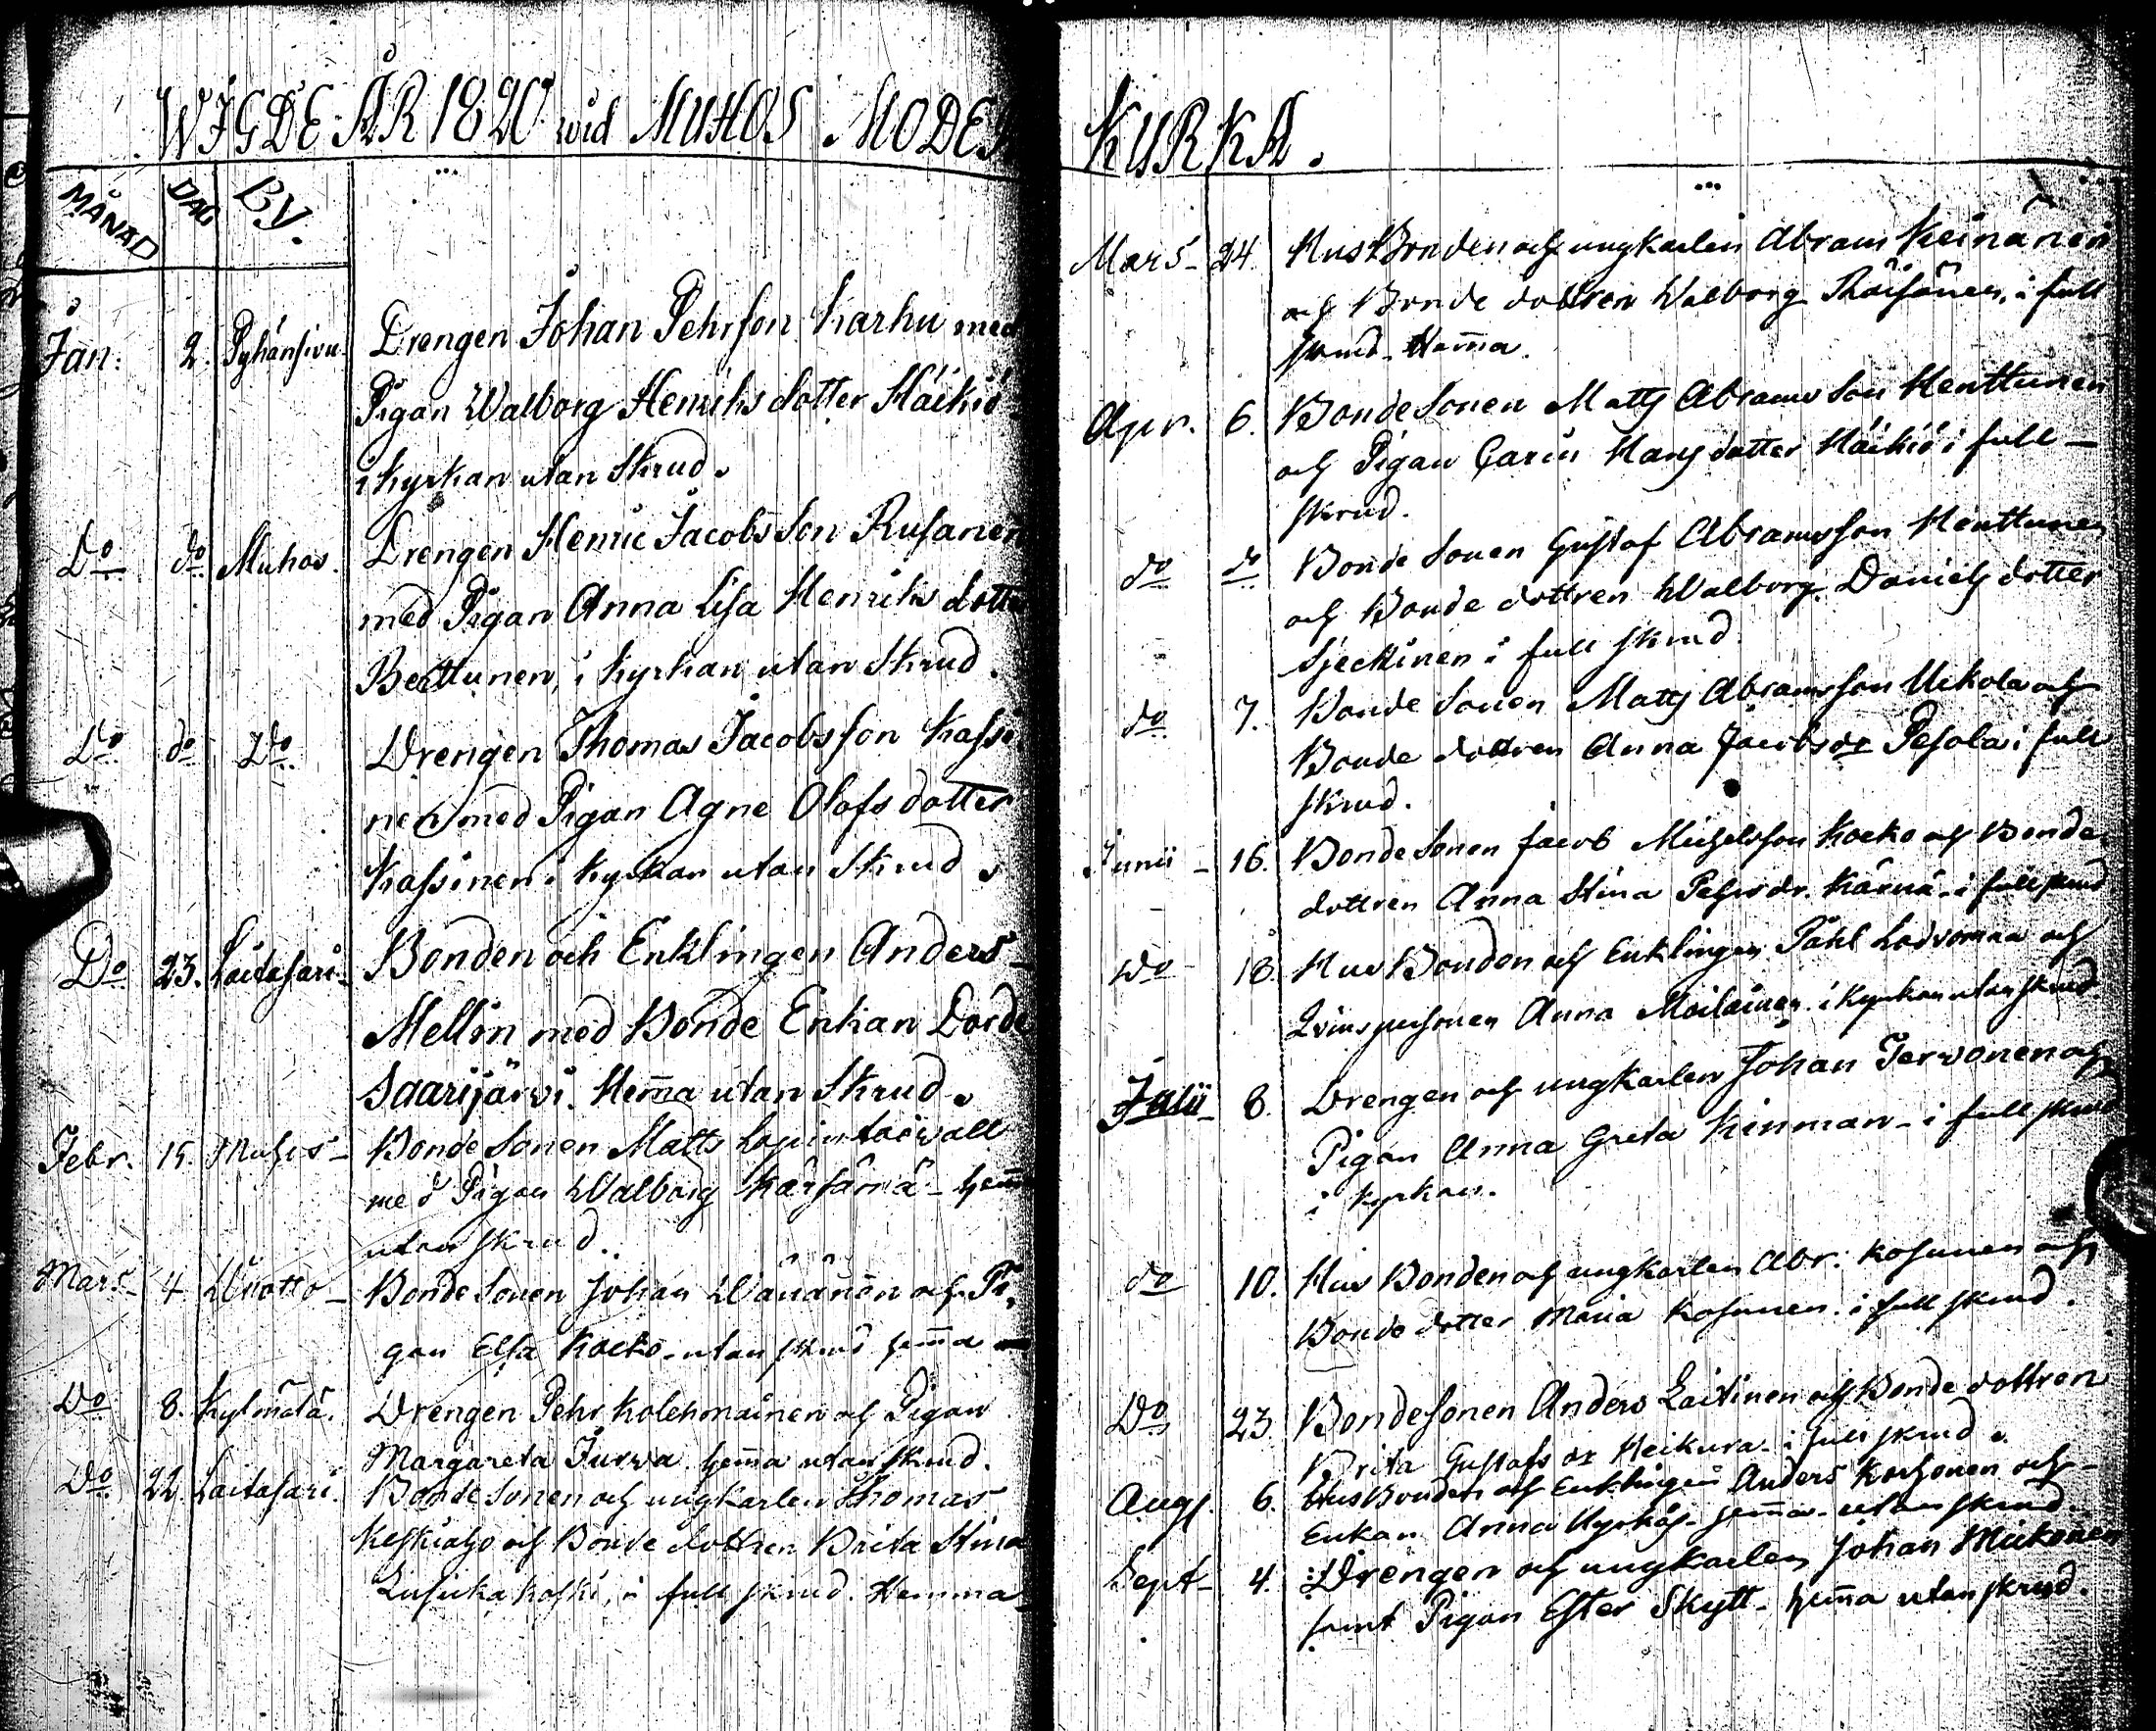 WIGDE ÅR 1820 wid MUHOS MODER
MÅNAD DAG BY.
Jan: 2. Pyhänsivu. Drengen Johan Pehrson Karhu med
Pigan Walborg Henriks dotter Häikiö
i kyrkan utan Skrud.
Do do Muhos. Drengen Henric Jacobsson Rusanen
med Pigan Anna Lisa Henriks dotter
i kyrkan utan Skrud.
Do do Do Drengen Thomas Jacobsson Kassi
nen med Pigan Agne Olofs dotter
Kassinen i kyrkan utan Skrud.
Do 23. Laitasari- Bonden och Enklingen Anders-
Mellin med Bonde Enkan Dorde
Saarijärvi. Hem̄a utan Skrud.
Febr. 15. Muhos- Bonde Sonen Matts
med Pigan Walborg Kärsämä- hem̄a
utan skrud.
Mars- 4. Wuotto- Bonde Sonen Johan Wäänänen och Pi,
gan Elsa Kocko- utan skrud hem̄a
Do 8. Kylmälä. Drengen Pehr Kolehmainen och Pigan
Margareta Jurva. hem̄a utan skrud.
Do 22. Laitasari. Bonde Sonen och ungkarlen Thomas
Keskiaho och Bonde dottren Brita Stina
i full skrud. Hemma-
KYRKA.
Mars- 24. HusBonden och ungkarlen Abram Keinänen
och Bonde dottren Walborg Räisänen, i full
skrud- Hem̄a.
Apr. 6. BondeSonen Matts Abramsson Henttunen
och Pigan Carin Hans dotter Häikiö i full-
skrud.
do do Bonde Sonen Gustaf Abramsson Henttunen
och Bonde dottren Walborg Daniels dotter
i full skrud.
do 7. Bonde Sonen Matts Abramsson Ukola och
Bonde dottren Anna Jacobsdr Pesola i full
skrud.
Junii- 16. Bonde Sonen Jacob Michelsson Kocko och Bonde
dottren Anna Stina Pehrsdr. Kärnä- i full skrud
Do- 18. HusBonden och Enklingen Påhl Lodvomaa och
Qvinspersonen Anna Moilainen i kyrkan utan skrud.
Julii- 8. Drengen och ungkarlen Johan Tervonen och
Pigan Anna Greta Kinman- i full skrud
i kyrkan.
do 10. Hus Bonden och ungkarlen Abr: Kosunen och
Bonde dotter Maria Kosunen. i full skrud.
Do 23. BondeSonen Anders Laitinen och Bonde dottren
Brita Gustafs dr Heikura- i full skrud.
Aug. 6. HusBonden och Enklingen Anders Korhonen och-
Enkan Anna hem̄a- utan skrud.
Sept- 4. Drengen och ungkarlen Johan Mickonen
samt Pigan Ester Skytt- hem̄a utan skrud.